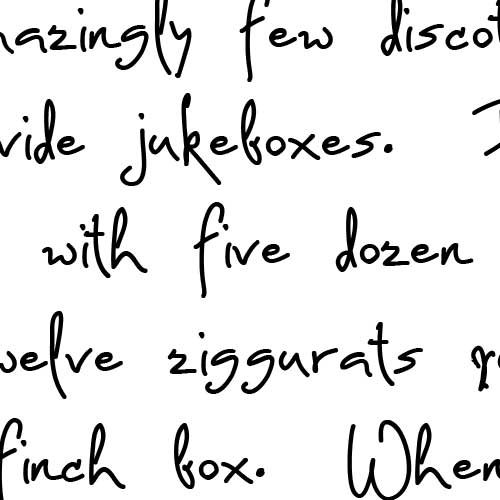 mazingly few discot
vide jukeboxes.
with five dozen
welve ziggurats
finch box. When